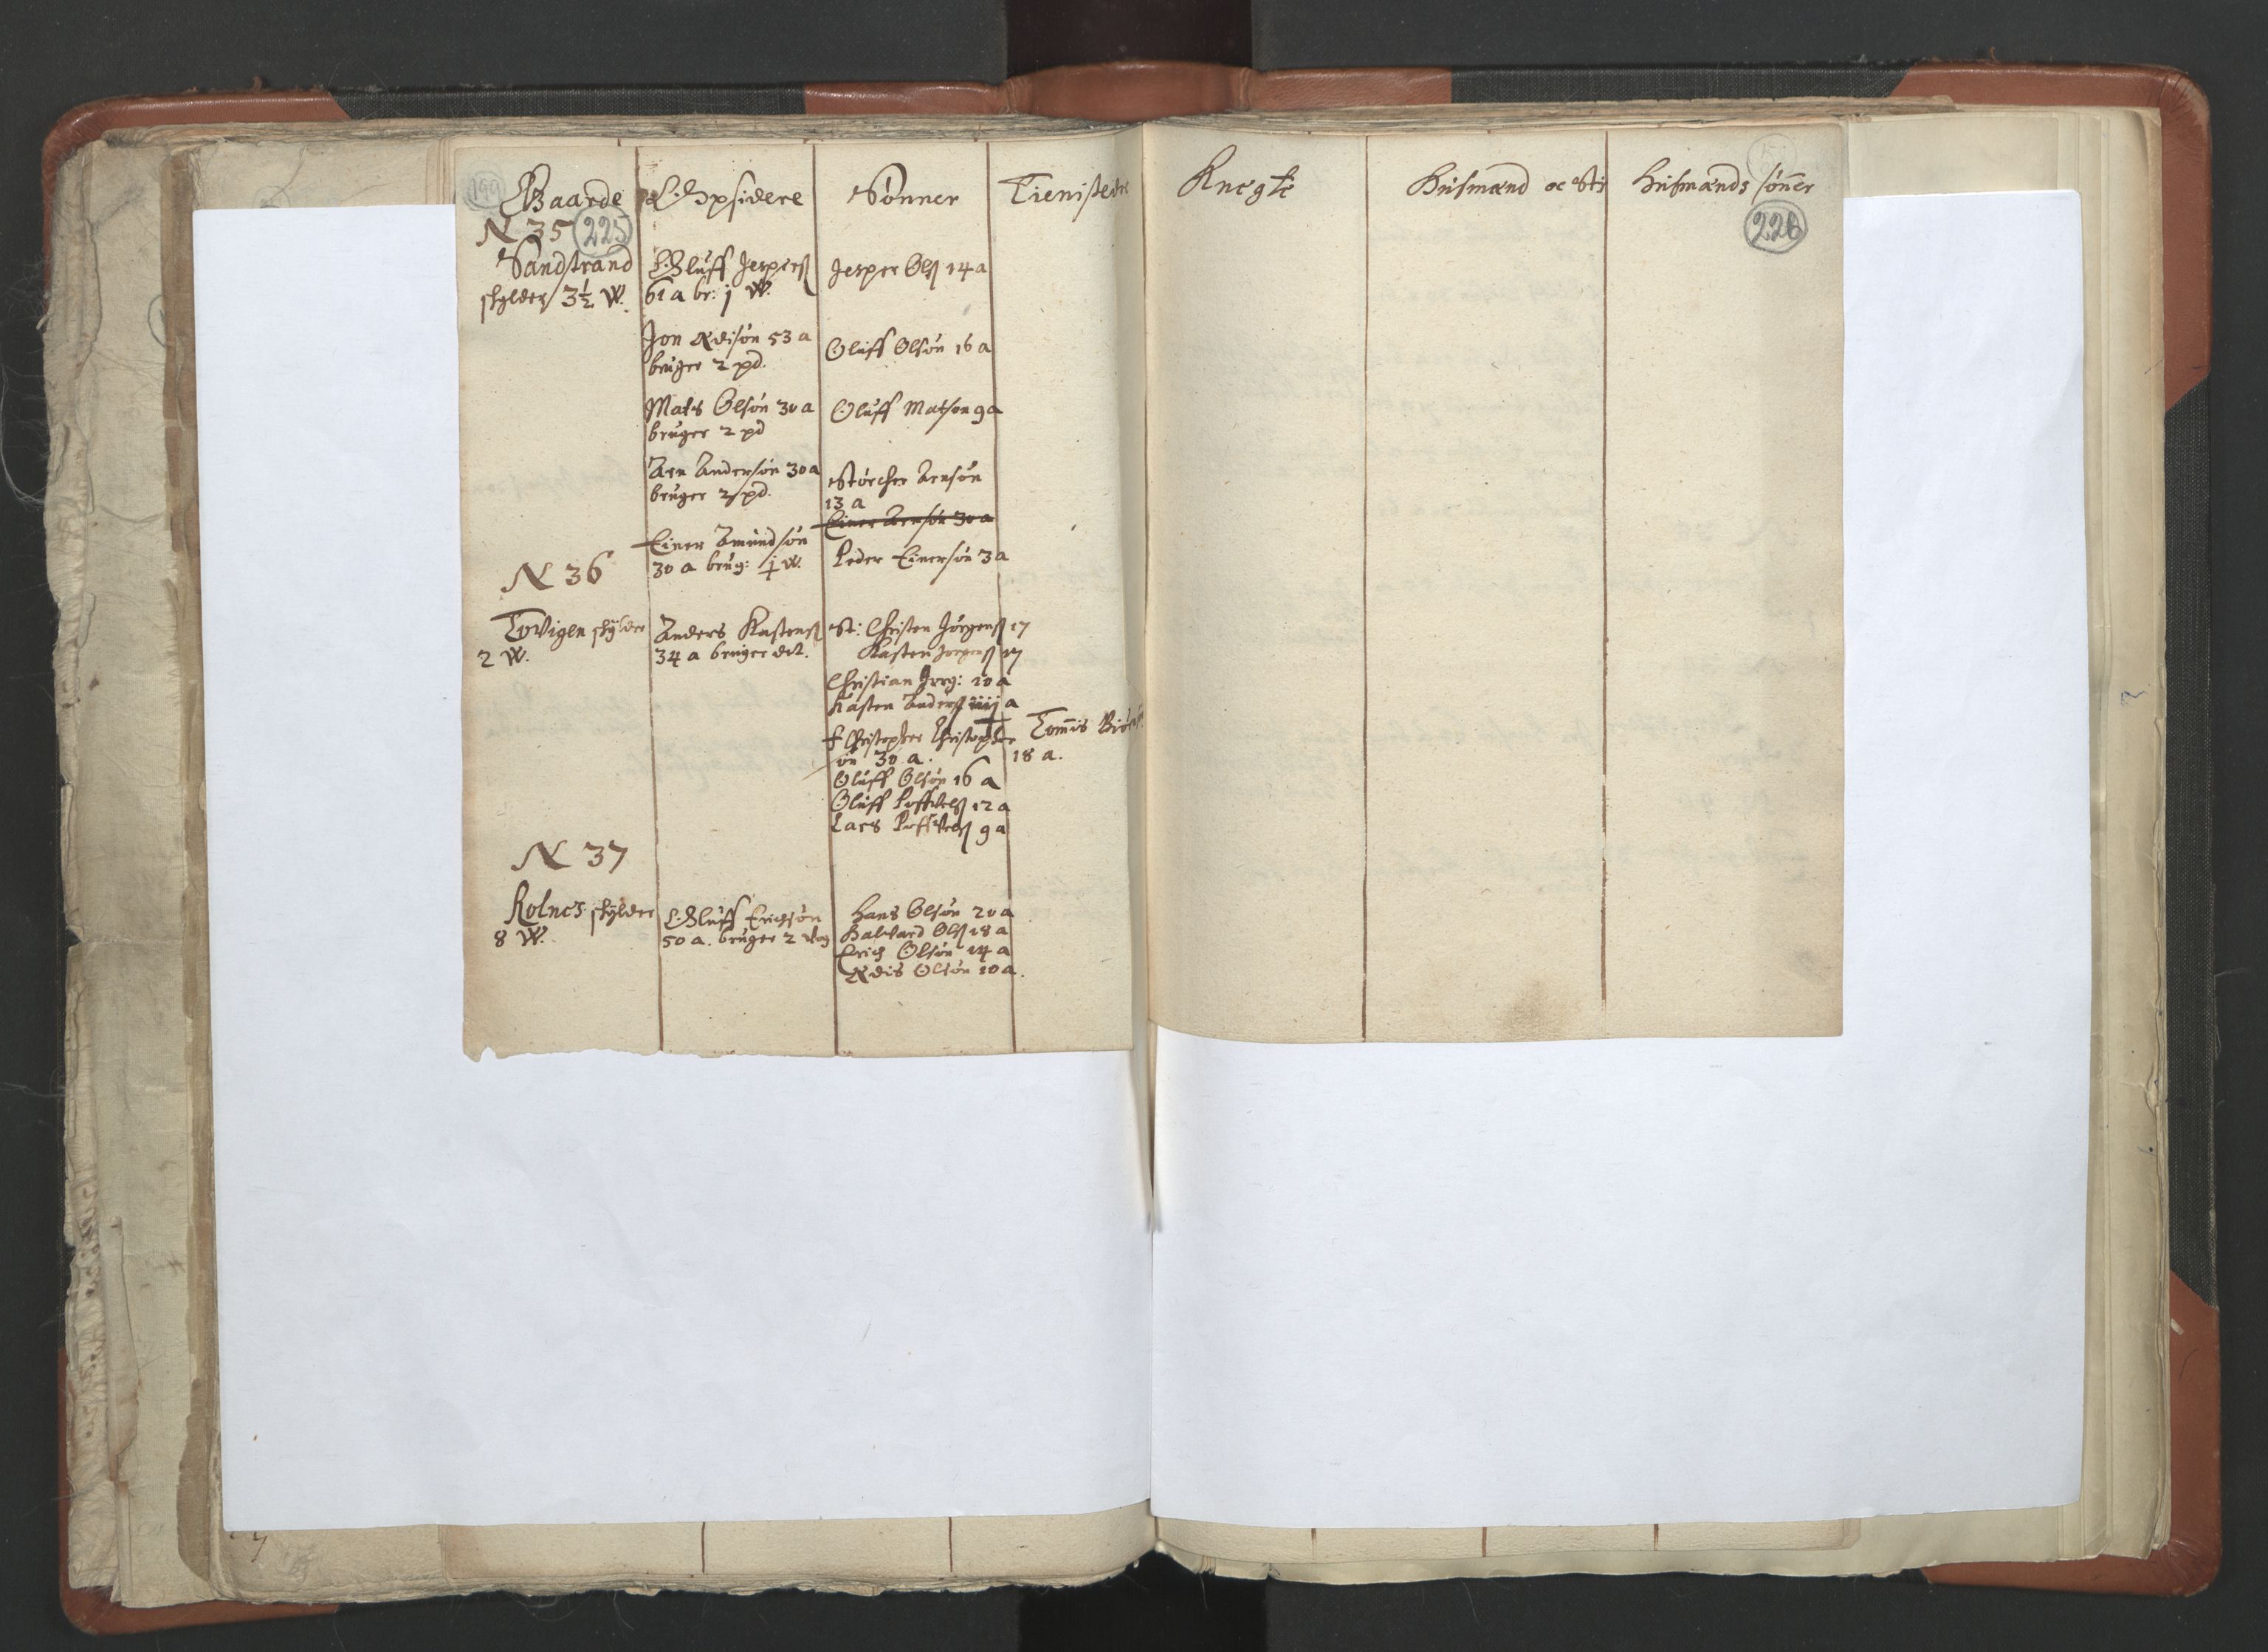 Gaarde
Opsidere
Sønner
Tieniste
Knegte
Husmænd oc Sti
Husmænds sønner
199
N 35 225
226
Sandstrand
skylder 3½ W.
Oluff Jespersß
61 a br: j W.
Jesper Olß 14 a
Jon Ædisøn 53 a
bruger 2 pd.
Oluff Olsøn 16 a
Mats Olsøn 30 a
bruger 2 pd
Oluff Matson 9 a
Arn Andersøn 30 a
bruger 2 pd.
Størcher Arnsøn
13 a
Einer Arnsøn 30 a
Einer Amundsøn
30 a brug: ½ W.
Peder Einersøn 3 a
N 36
Tovigen skylder
2 W.
Anders Kastenß
34 a bruger det.
St: Christen Jørgenß 17
Kasten Jørgenß
Christian Jørg: 10 a
Kasten Anderß iiij a
† Christopher Christopher
øn 30 a.
Tommis
18 a.
Oluff Olsøn 16 a
Oluff Poffvelß 12 a
Lars Poffvelß 9 a
N 37
Rolnes skylder
8 W.
Oluff Erichsøn
50 a. bruger 2 Vog
Hans Olsøn 20 a
Halvard Olß 18 a
Erich Olsøn 14 a
Ædis Olsøn 10 a.